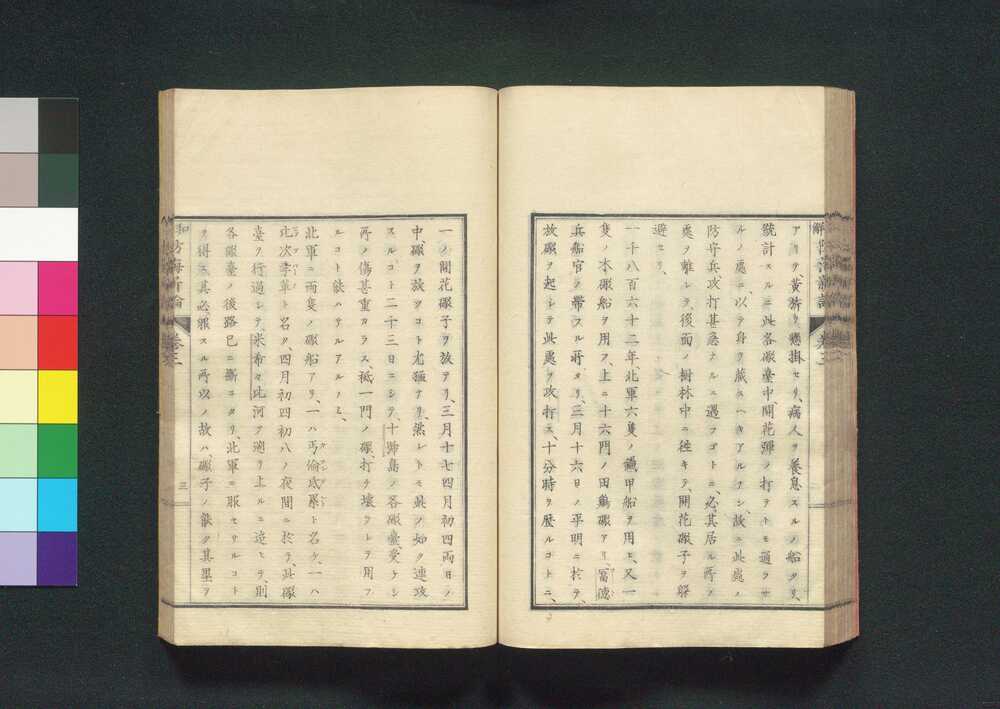 アリテ、黄旂ヲ懸掛セリ、病人ヲ養息スルノ船タリ、
統計スルニ此各礮臺中、開花彈ノ打ヲトモ通ラサ
ルノ處ニ、以テ身ヲ藏スヘキアルナシ、故ニ此處ノ
防守兵、攻打甚急ナルニ遇フゴトニ、必其居ル所ノ
處ヲ離レテ、後面ノ樹林中ニ往キテ、開花礮子ヲ躱
避セリ、
一千八百六十二年、北軍六隻ノ鐵甲船ヲ用ヒ、又一
隻ノ木礮船ヲ用フ、上ニ十六門ノ田鷄礮アリ、冨德
兵船官ヲ帶スル將タリ、三月十六日ノ平明ニ於テ、
放礮ヲ起シテ此處ヲ攻打ス、十分時ヲ歴ルコトニ、
一ノ開花礮子ヲ放テリ、三月十七四月初四兩日ノ
中、礮ヲ放ツコト尤猛アリ、然レトモ此ノ如ク連攻
スルコト二十三日ニシテ、十號島ノ各礮臺受ケシ
所ノ傷甚重カラス、祗一門ノ礮、打チ壞ラレテ用フ
ルコト能ハサルアルノミ、
北軍ニ兩隻ノ礮船アリ、一ハ丐倫底累ト名ケ、一ハ
此次孛革ト名ク、四月初四初八ノ夜間ニ於テ、此礮
臺ヲ行過シテ、米希々比河ヲ遡リ上ルニ迨ヒテ、則
各礮臺ノ後路已ニ斷エタリ、北軍ニ服セサルコト
ヲ得ス、其必服スル所以ノ故ハ、礮子ノ能ク其壘ヲ
防海新論 卷三
三